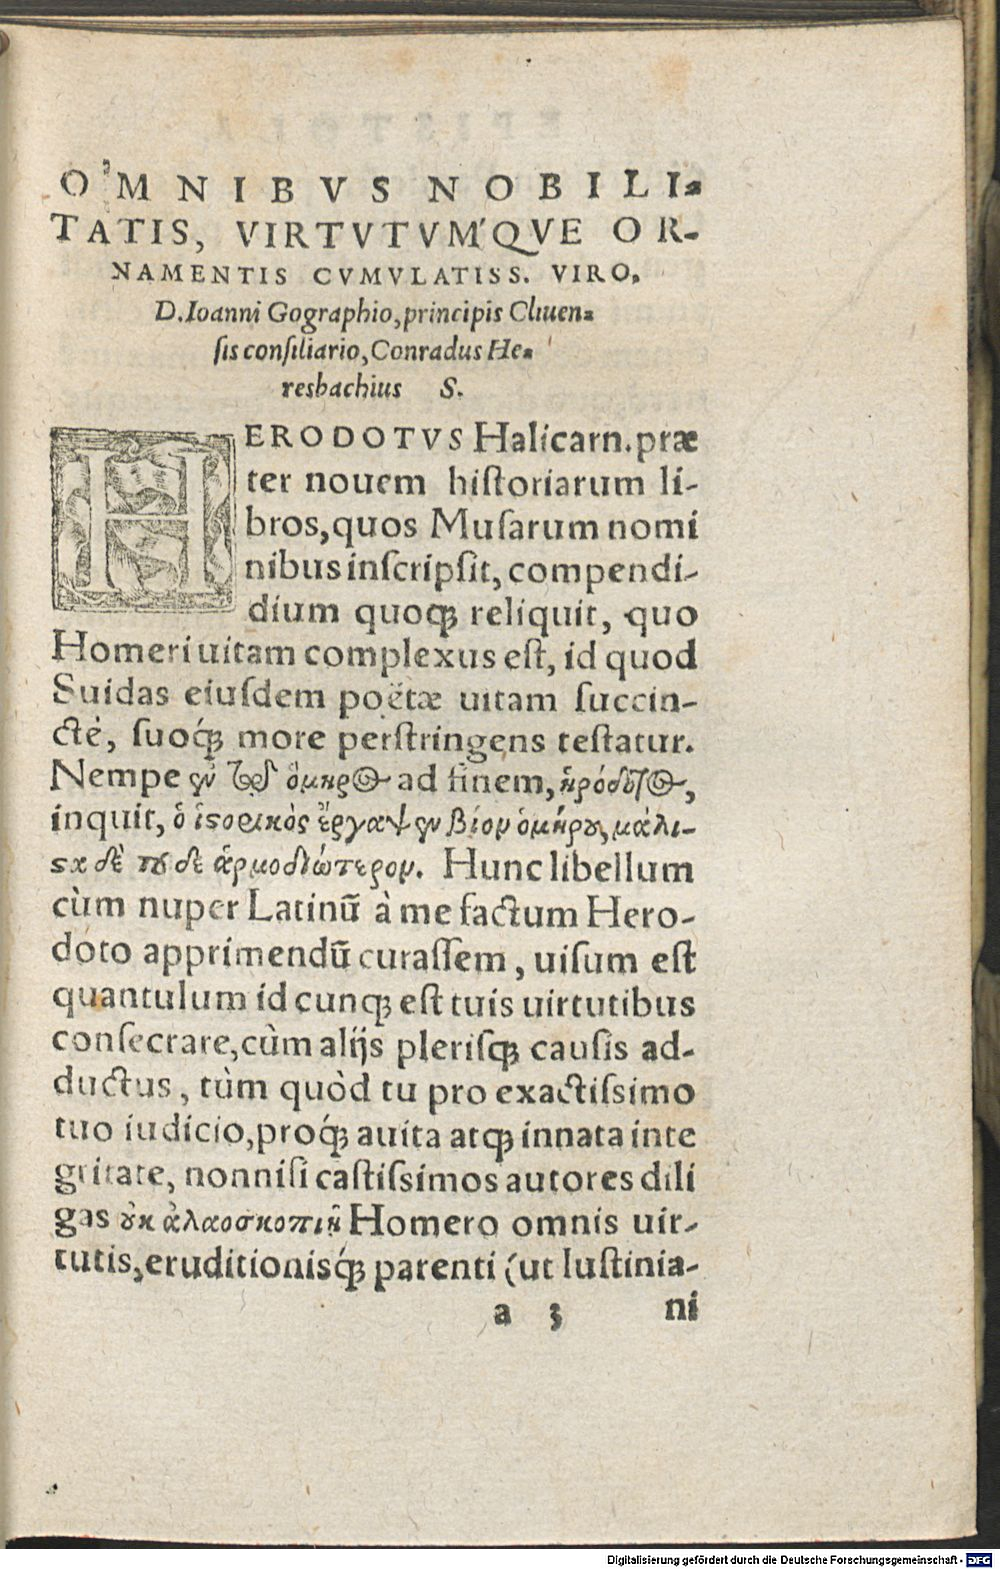 OMNIBVS NOBILI-
TATIS, VIRTVTVMQVE OR-
NAMENTIS CVMVLATISS. VIRO,
D. Ioanni Gographio, principis Cliuen-
sis consiliario, Conradus He-
resbachius S.
HERODOTVS Halicarn. præ
ter nouem historiarum li-
bros, quos Musarum nomi
nibus inscripsit, compendi-
dium quoqꝫ reliquit, quo
Homeri uitam complexus est, id quod
Suidas eiusdem poëtæ uitam succin-
ctè, suoqꝫ́ more perstringens testatur.
Nempe ἐν τῷ ὅμηρος ad finem, ἡρόδοτος,
inquit, ὁ ἱστορικὸς ἔγραψεν βίον ὁμήρου, μάλι-
στα δὲ που δὲ ἁρμοδιώτερον. Hunc libellum
cùm nuper Latinū à me factum Hero-
doto apprimendū curassem, uisum est
quantulum id cunqꝫ est tuis uirtutibus
consecrare, cùm alijs plerisqꝫ causis ad-
ductus, tùm quòd tu pro exactissimo
tuo iudicio, proqꝫ́ auita atqꝫ innata inte
gritate, nonnisi castissimos autores dili
gas οὐκ ἀλαοσκοπιῇ Homero omnis uir-
tutis, eruditionisqꝫ́ parenti (ut Iustinia-
a 3 ni
Digitalisierung gefördert durch die Deutsche Forschungsgemeinschaft - DFG